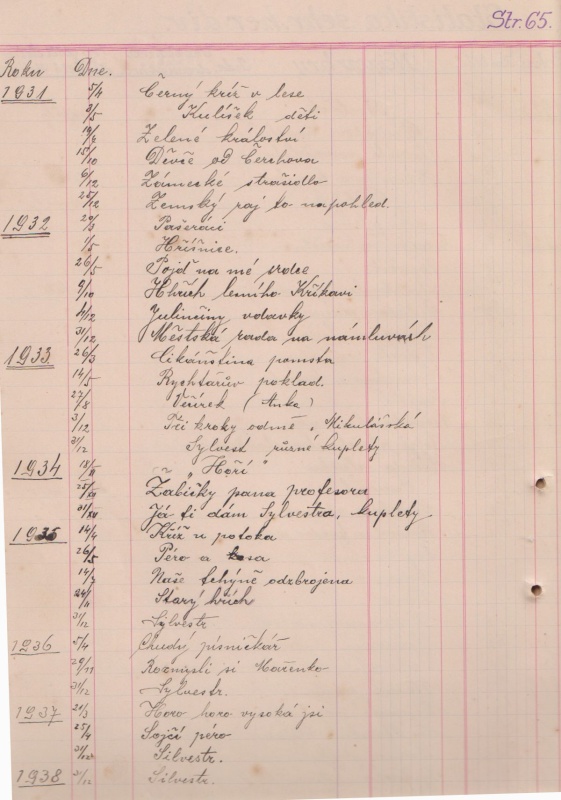 Str. 65.
Roku Dne.
1931 5/4 Černý kříž v lese
3/5 Kulíšek děti
Zelené království
15/10 Děvče od Čerchova
6/12 Zámecké strašidlo
25/12 Zemský raj to napohled.
1932 29/3 Pašeráci
1/5 Hříšnice.
26/5 Pojď na mé srdce
9/10 Hřích lemího Kříkavi
4/12 Julinčiny vdavky
31/12 Městská rada na námluvách
1933 26/3 Cikánština pomsta
14/5 Rychtářův poklad.
27/8 Večírek (Anka)
3/12 Tři kroky od mě, Mikulášská
31/12 Sylvest různé kuplety
1934 18/III „Hoří“
25/XII Žabičky pana profesora
31/XII Já ti dám Sylvestra, kuplety
1935 14/4 Kříž u potoka
26/5 Péro a kosa
14/7 Naše tchýně odzbrojena
24/11 Starý hřích
31/12 Sylvestr
1936 5/4 Chudý písničkář
29/11 Rozmysli si Mařenko
31/12 Sylvestr.
1937 21/3 Horo horo vysoká jsi
25/4 Sojčí péro
31/12 Silvestr.
1938 31/12 Silvestr.